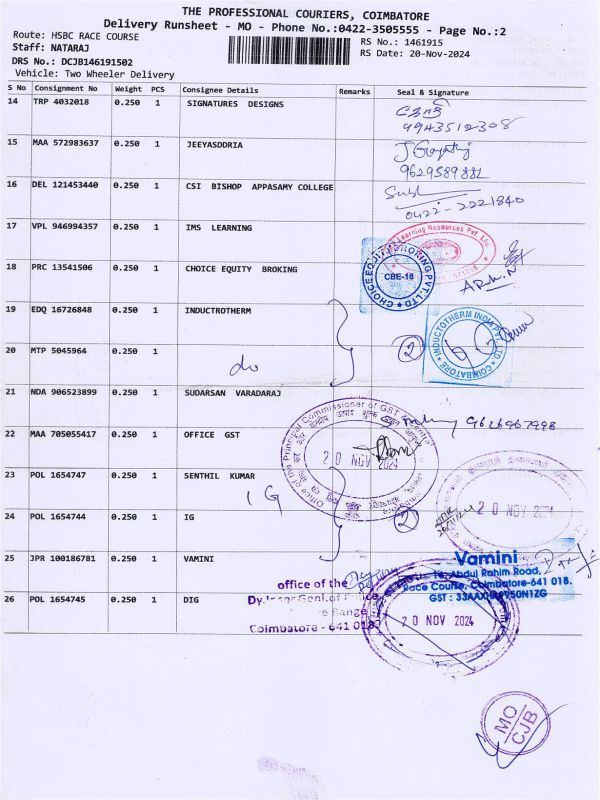 THE PROFESSIONAL COURIERS, COIMBATORE
Delivery Runsheet - MO - Phone No.:0422-3505555 - Page No.:2
Route: HSBC RACE COURSE
RS No.: 1461915
Staff: NATARAJ
RS Date: 20-Nov-2024
DRS No.: DCJB146191502
Vehicle: Two Wheeler Delivery
S No Consignment No Weight PCS Consignee Details Remarks Seal & Signature
14 TRP 4032018 0.250 1 SIGNATURES DESIGNS
9943512308
15 MAA 572983637 0.250 1 JEEYASDDRIA
9629589882
16 DEL 121453440 0.250 1 CSI BISHOP APPASAMY COLLEGE
0422-2221840
17 VPL 946994357 0.250 1 IMS LEARNING
Learning Resources Pvt. Ltd.
18 PRC 13541506 0.250 1 CHOICE EQUITY BROKING
CHOICE EQUITY BROKING PVT. LTD
CBE-18
19 EDQ 16726848 0.250 1 INDUCTROTHERM
2
INDUCTOTHERM INDIA PVT. LTD
COIMBATORE
20 MTP 5045964 0.250 1
do
21 NDA 906523899 0.250 1 SUDARSAN VARADARAJ
22 MAA 705055417 0.250 1 OFFICE GST
Office of the Principal Commissioner of GST & Central
20 NOV 2024
23 POL 1654747 0.250 1 SENTHIL KUMAR
IG
20 NOV 2024
24 POL 1654744 0.250 1 IG
2
25 JPR 100186781 0.250 1 VAMINI
Vamini
Abdul Rahim Road,
Race Course, Coimbatore-641 018.
office of the
26 POL 1654745 0.250 1 DIG
Coimbatore - 641 018
20 NOV 2024
MO
CJB